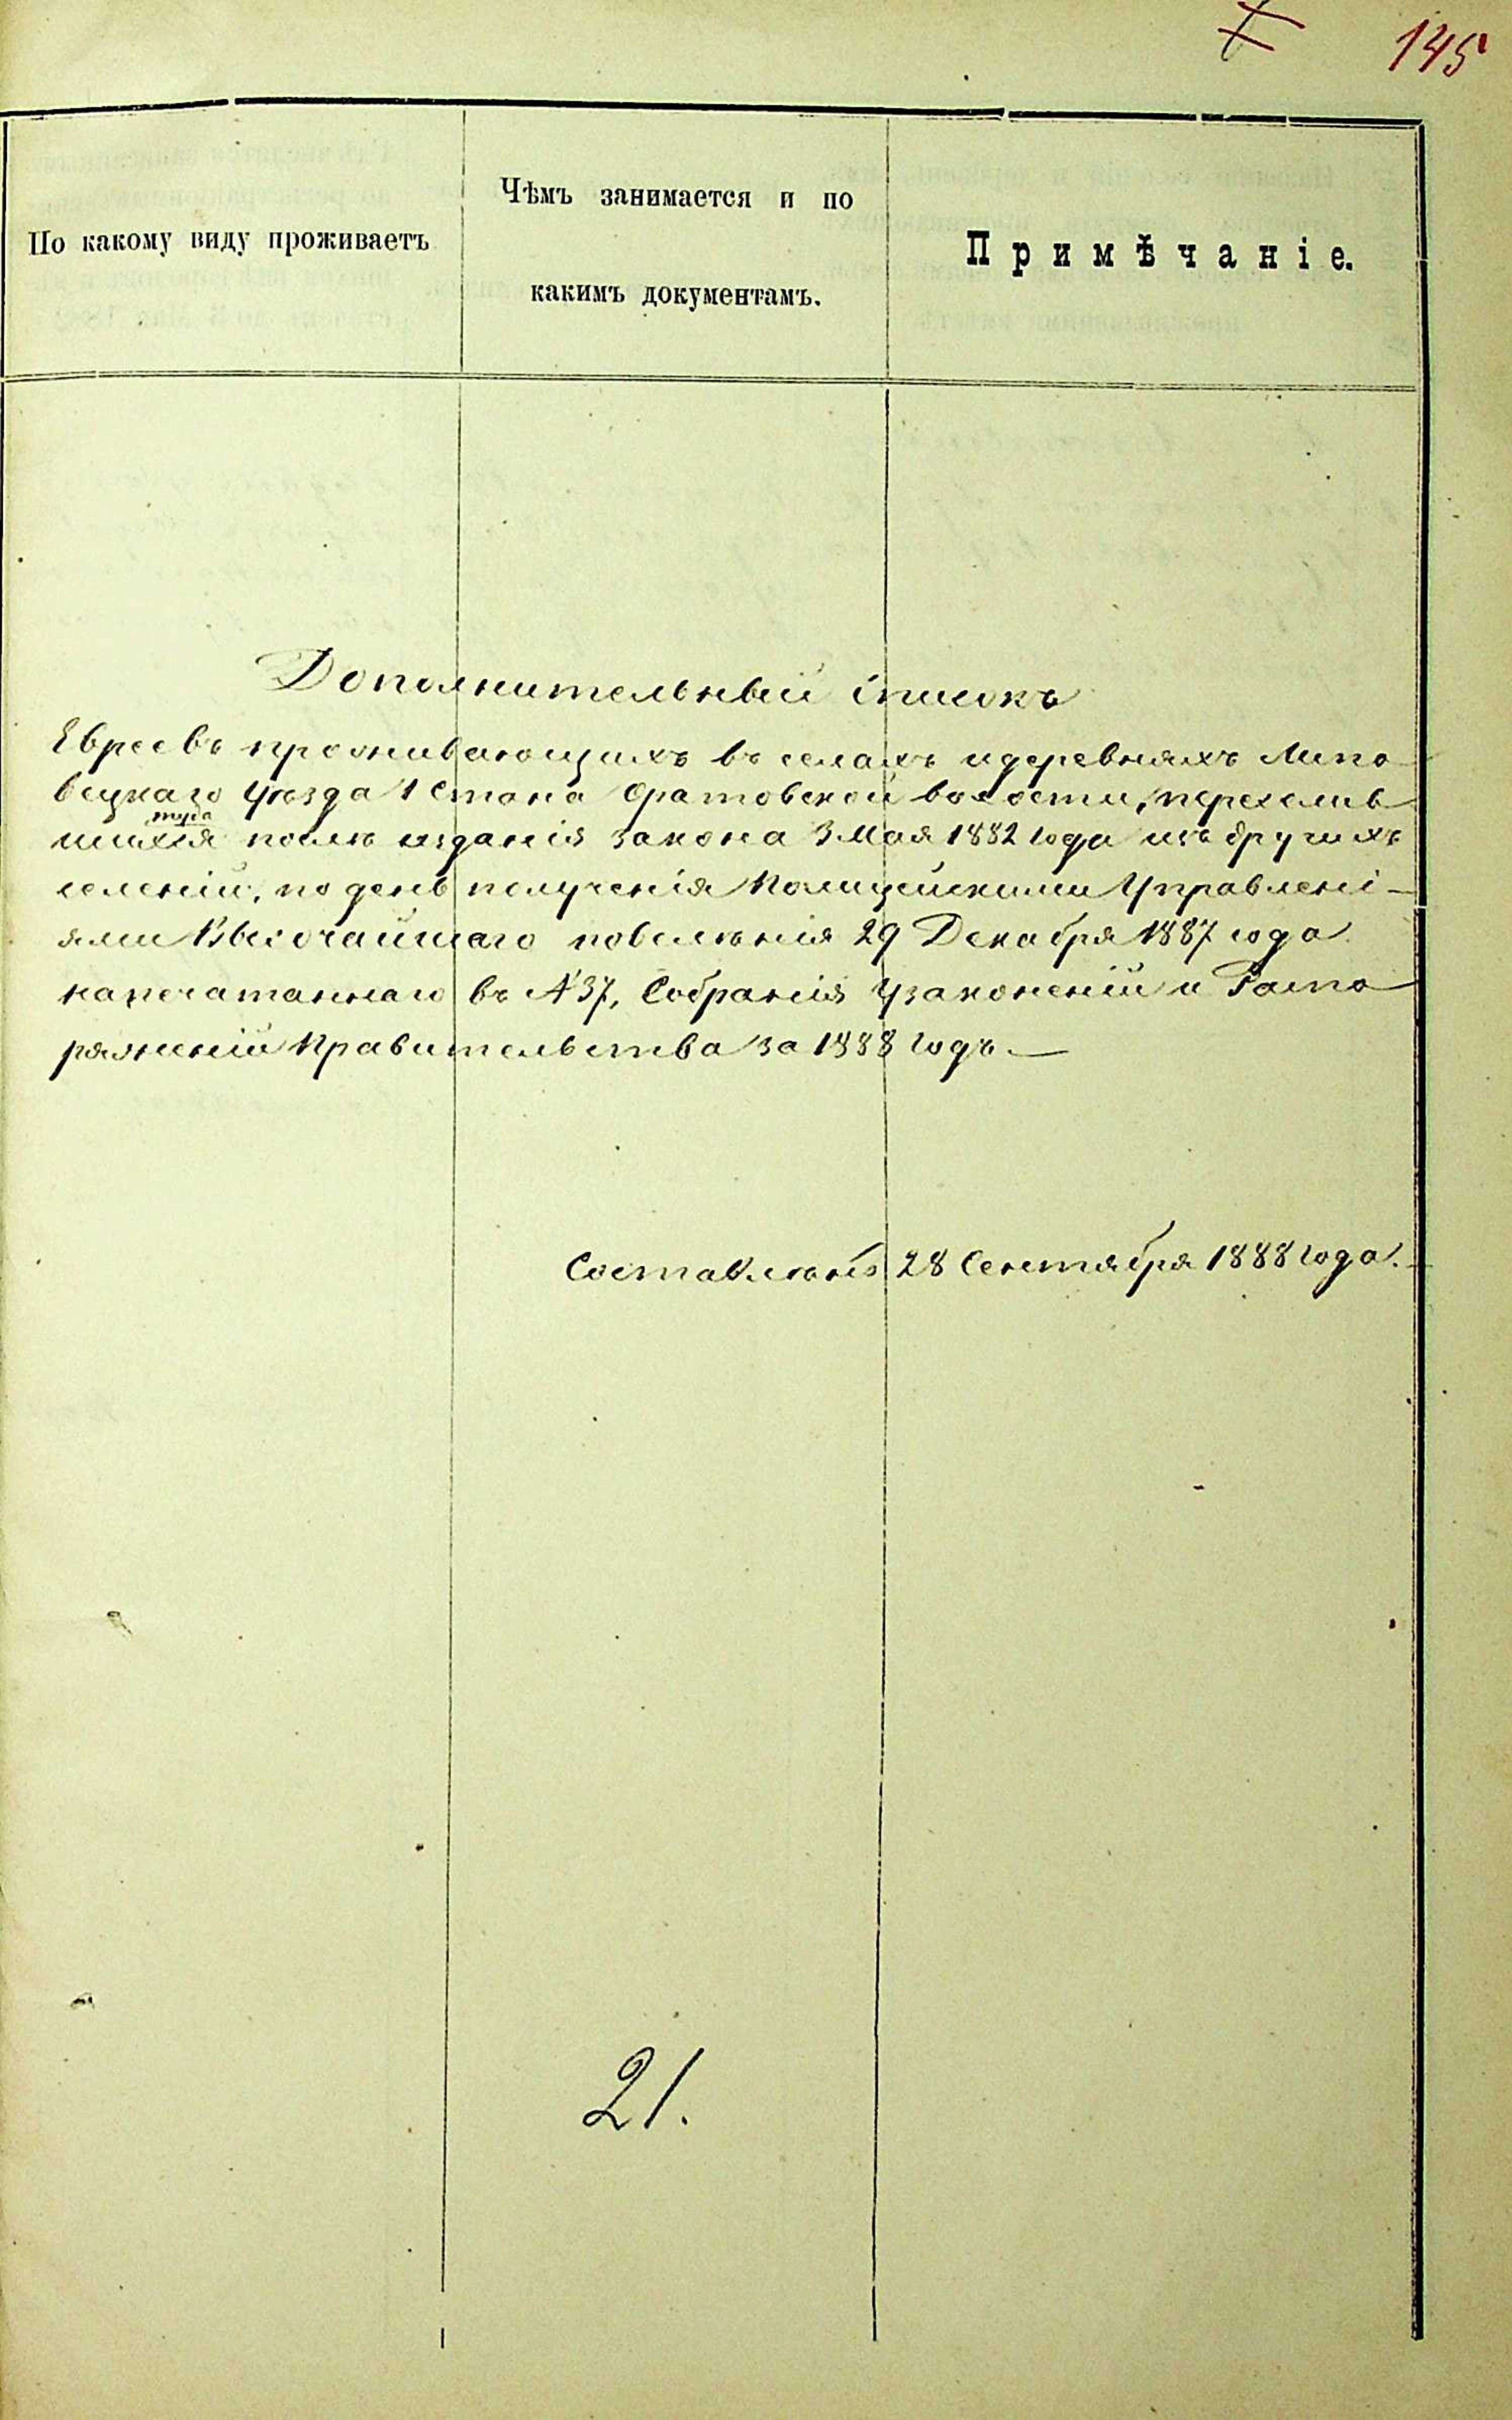 145
По какому виду проживаетъ
Чѣмъ занимается и по
какимъ документамъ.
Примѣчаніе.
Дополнительный списокъ
Евреевъ проживающихъ въ селахъ и деревняхъ Липо
вецкаго уѣзда 1 Стана Оратовской волости, переселив
туда
шихся послѣ изданія закона 3 Мая 1882 года изъ другихъ
селеній, по день полученія Полицейскими Управлені-
ями Высочайшаго повелѣнія 29 Декабря 1887 года
напечатаннаго въ № 37, Собранія узаконеній и Распо
ряженій Правительства за 1888 годъ. —
Составлѣнъ 28 Сентября 1888 года.
21.